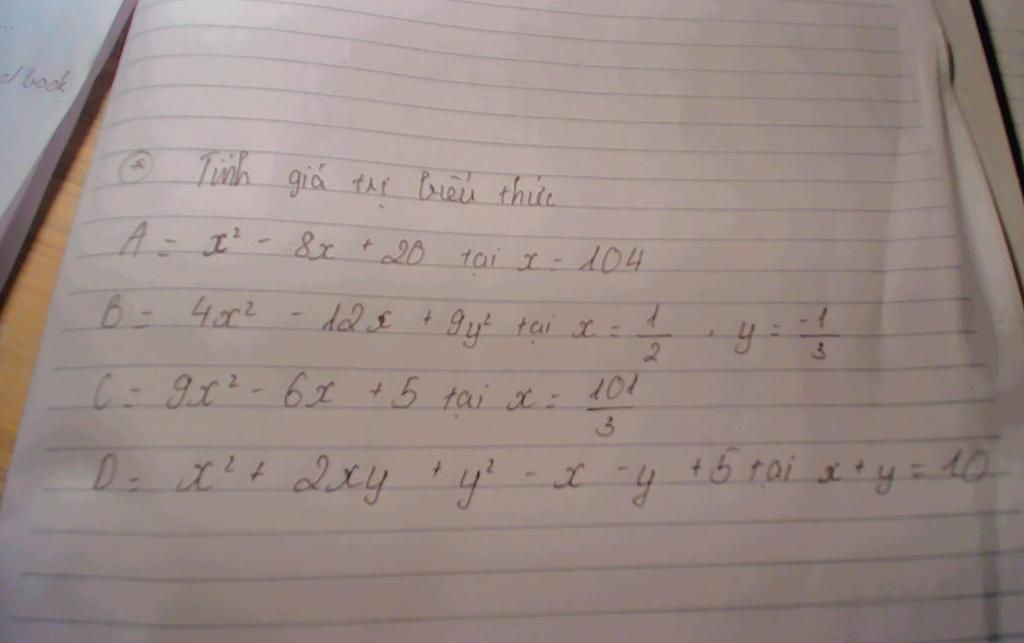 ...
d book
* Tính giá trị biểu thức
A = x² - 8x + 20 tại x = 104
B = 4x² - 12x + 9y² tại x = 1/2 . y = -1/3
C = 9x² - 6x + 5 tại x = 101/3
D = x² + 2xy + y² - x - y + 5 tại x + y = 10